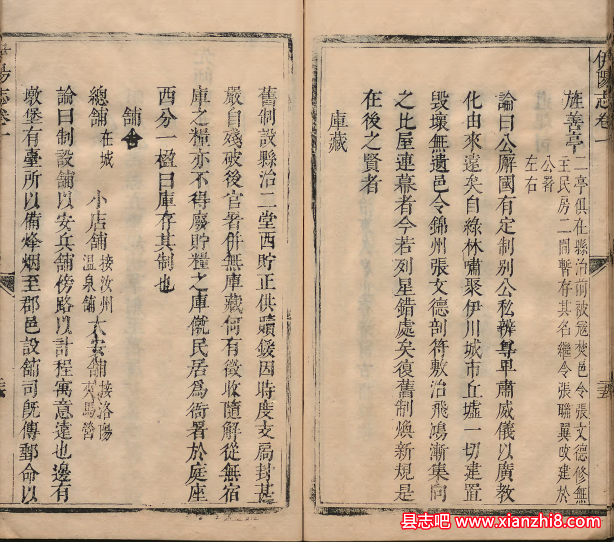 伊陽志卷一
旌善亭 二亭俱在縣治前被寇焚邑令張文德修無
主民房二間暫存其名繼令張聯翼改建於
公署
左右
論曰公廨國有定制別公私辨尊卑肅威儀以廣教
化由來遠矣自綠林嘯聚伊川城市丘墟一切建置
毀壞無遺邑令錦州張文德剖符敷治飛鴻漸集向
之比屋連幕者今若列星錯處矣復舊制煥新規是
在後之賢者
庫藏
舊制設縣治二堂西貯正供贖鍰因時度支扃封甚
嚴自殘破後官署併無庫藏何有徵收隨解從無宿
庫之糧亦不得廢貯糧之庫僦民居為衙署於庭座
西分一楹曰庫存其制也
舖舍
總舖 在城 小店舖 接汝州
溫泉舖 大安舖 接洛陽
夾馬營
論曰制設舖以安兵舖傍路以計程寓意遠也邊有
墩堡有臺所以備烽烟至郡邑設舖司旣傳郵命以
陽志卷一
县志吧 www.xianzhi8.com